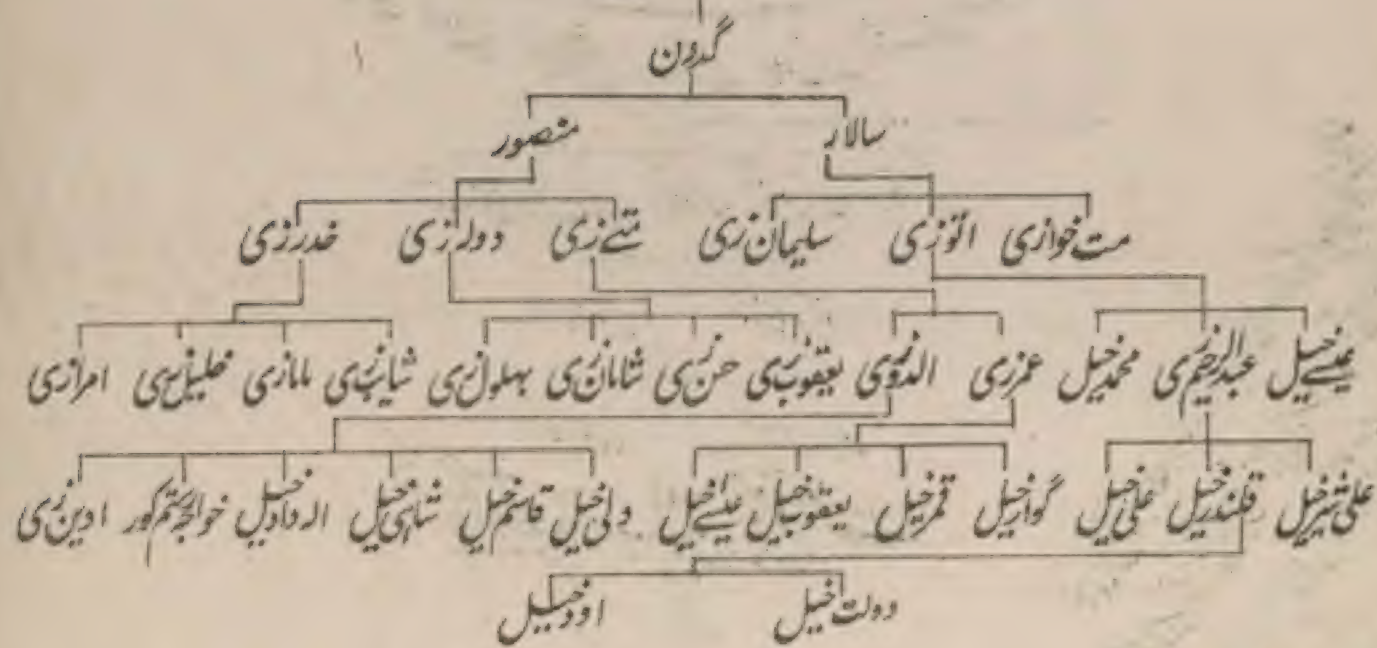 گدون
سالار منصور
مت خوازی اتوزی سلیمان زی متے زی دولرزی خدرزی
عیسے خیل عبدالرحیم زی محمد خیل عمرزی الدوزی یعقوب زی حسن زی شامان زی بہلول زی شایب زی مامازی خلیل زی امرازی
علی شیر خیل قلندر خیل علی خیل گواز خیل قمر خیل یعقوب خیل عیسے خیل ولی خیل قاسم خیل شاہی خیل الہ داد خیل خواجہ کور ادین زی
دولت خیل اود خیل